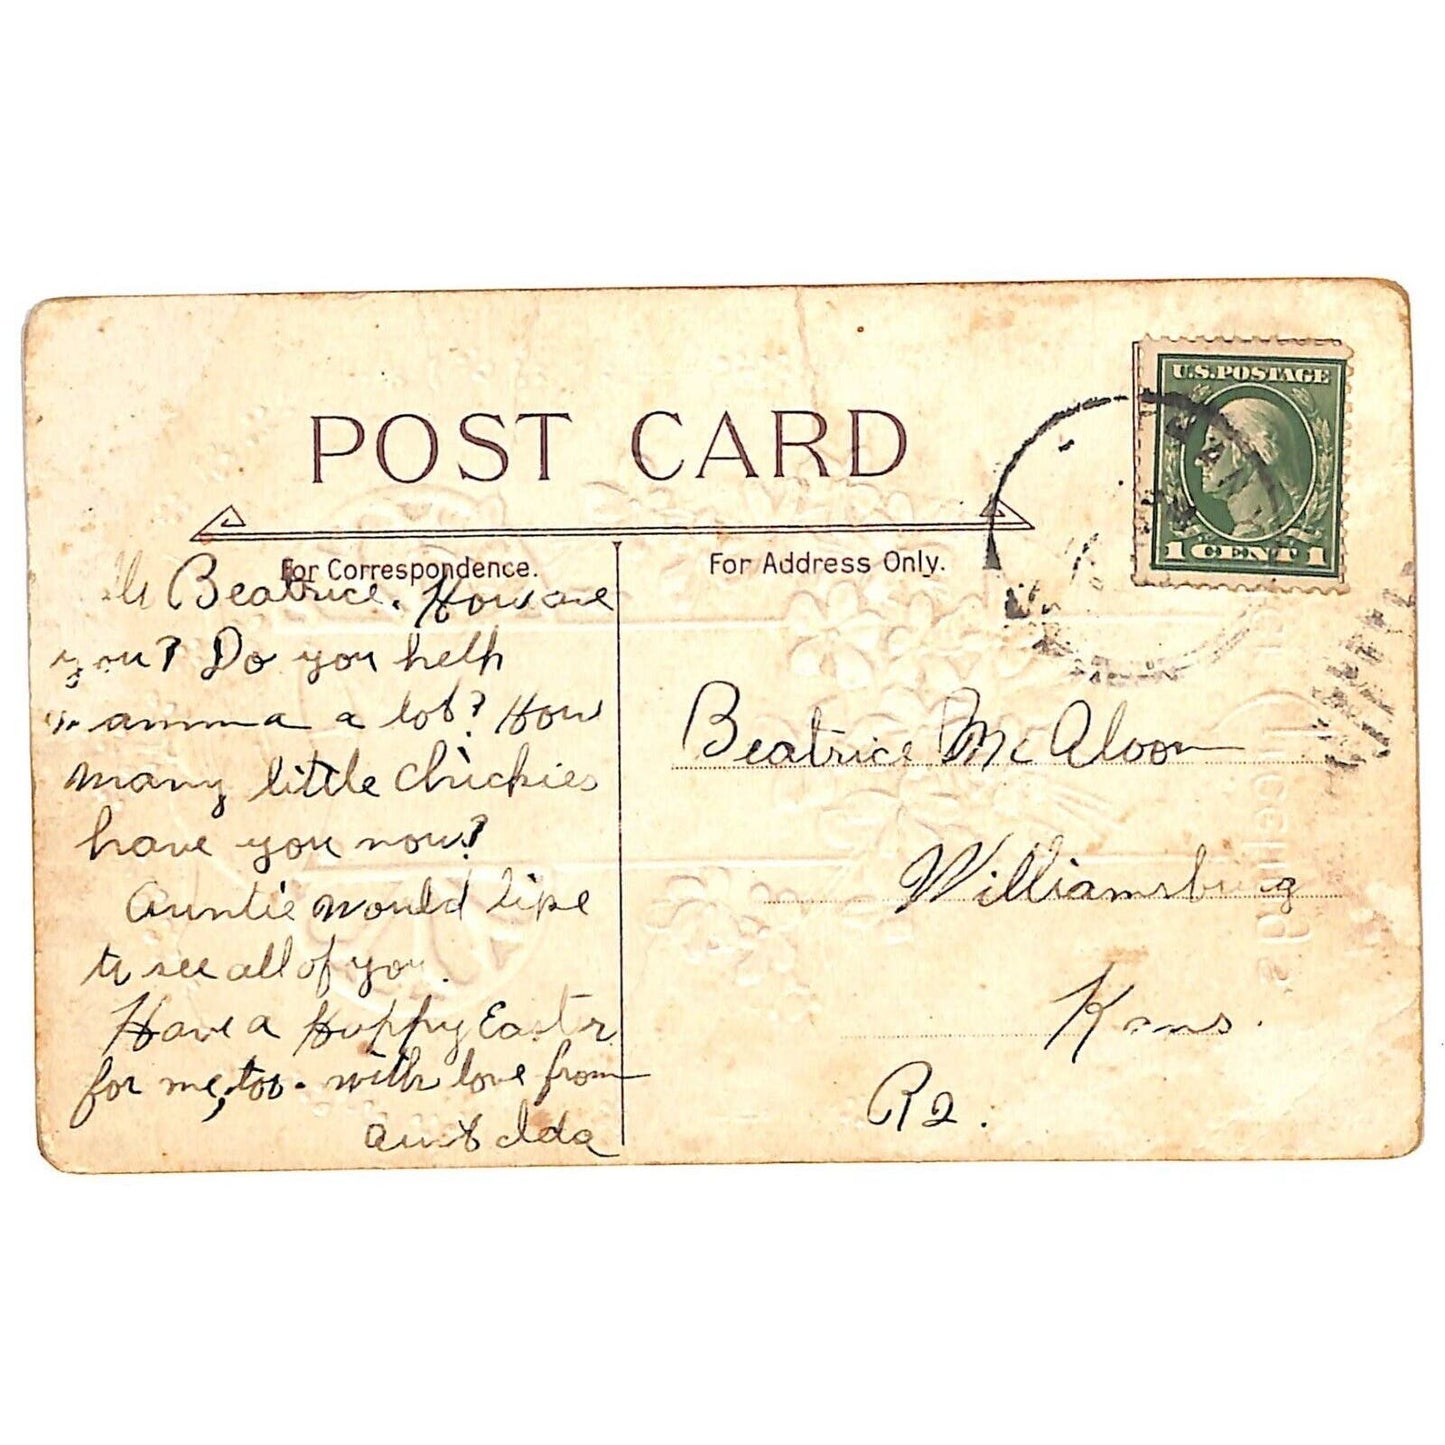 POST CARD
U.S. POSTAGE
1 CENT 1
For Correspondence.
For Address Only.
Beatrice. How are
you? Do you help
mamma a lot? How
many little chickies
have you now?
Auntie would like
to see all of you.
Have a Happy Easter
for me, too. with love from
Aunt Ida
Beatrice McAloon
Williamsburg
Kans.
R2.